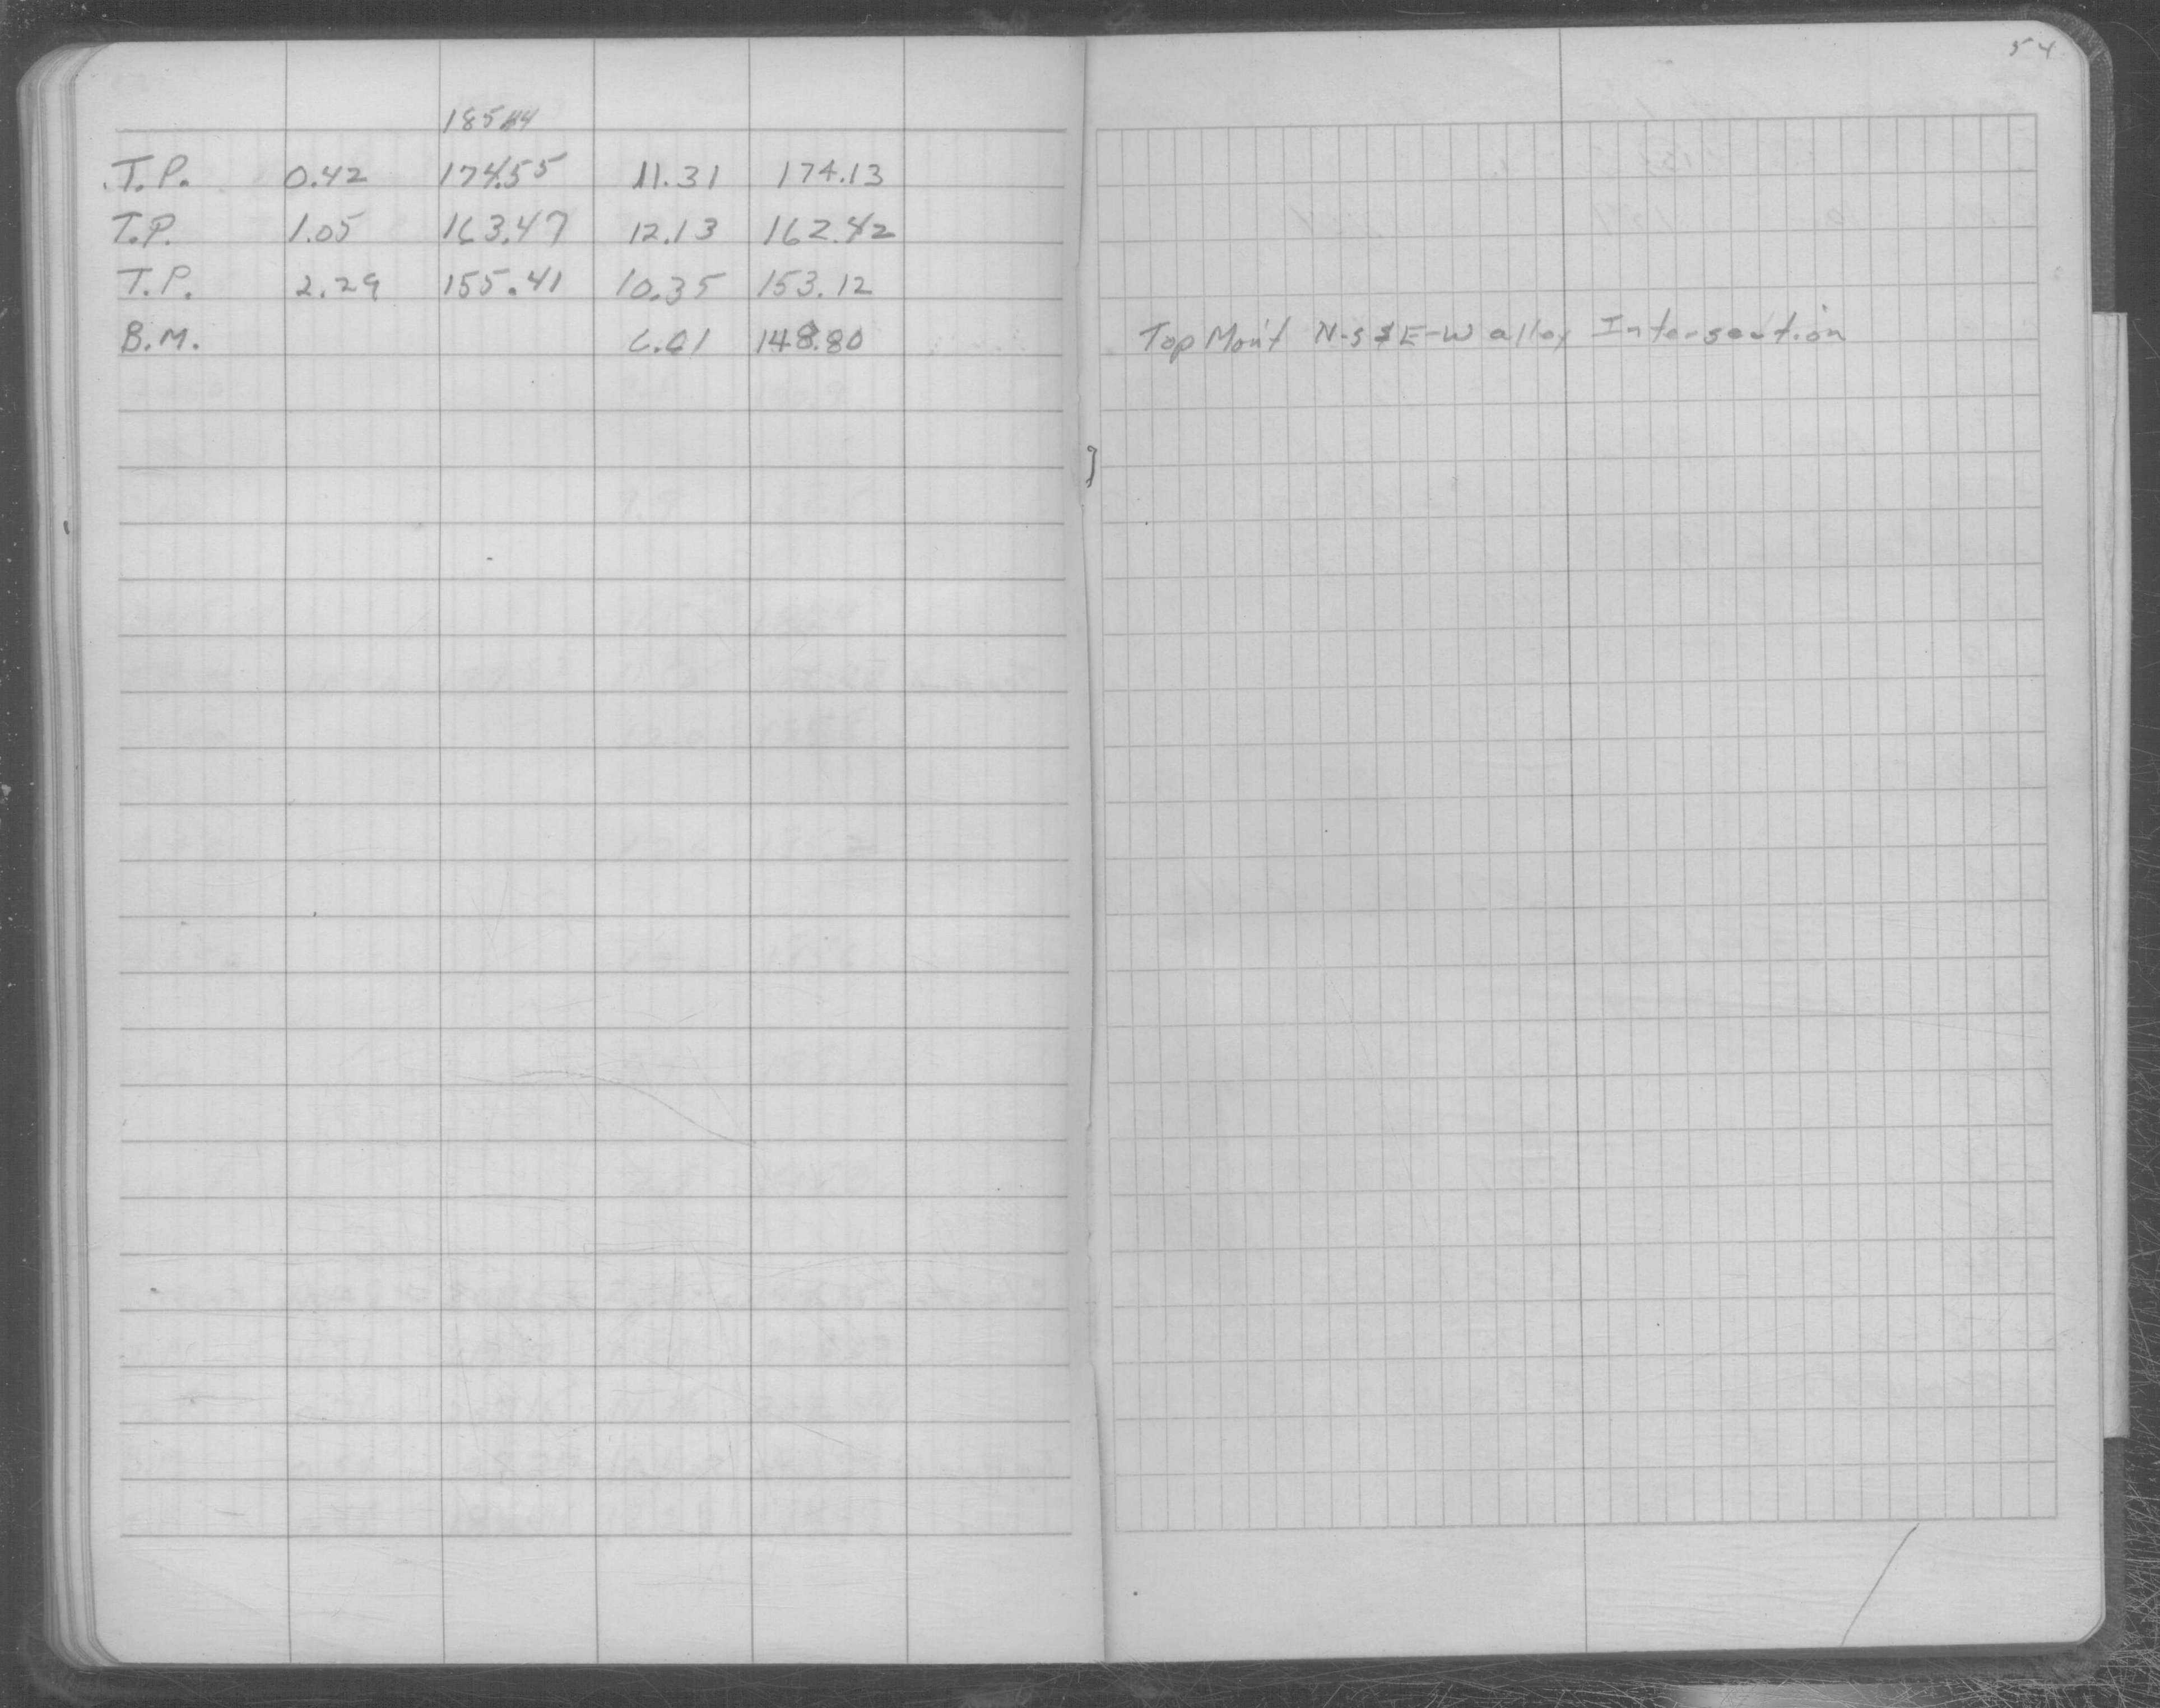 54
185.44
T.P. 0.42 174.55 11.31 174.13
T.P. 1.05 163.47 12.13 162.42
T.P. 2.29 155.41 10.35 153.12
B.M. 6.61 148.80 Top Mon't N-S & E-W alley Intersection